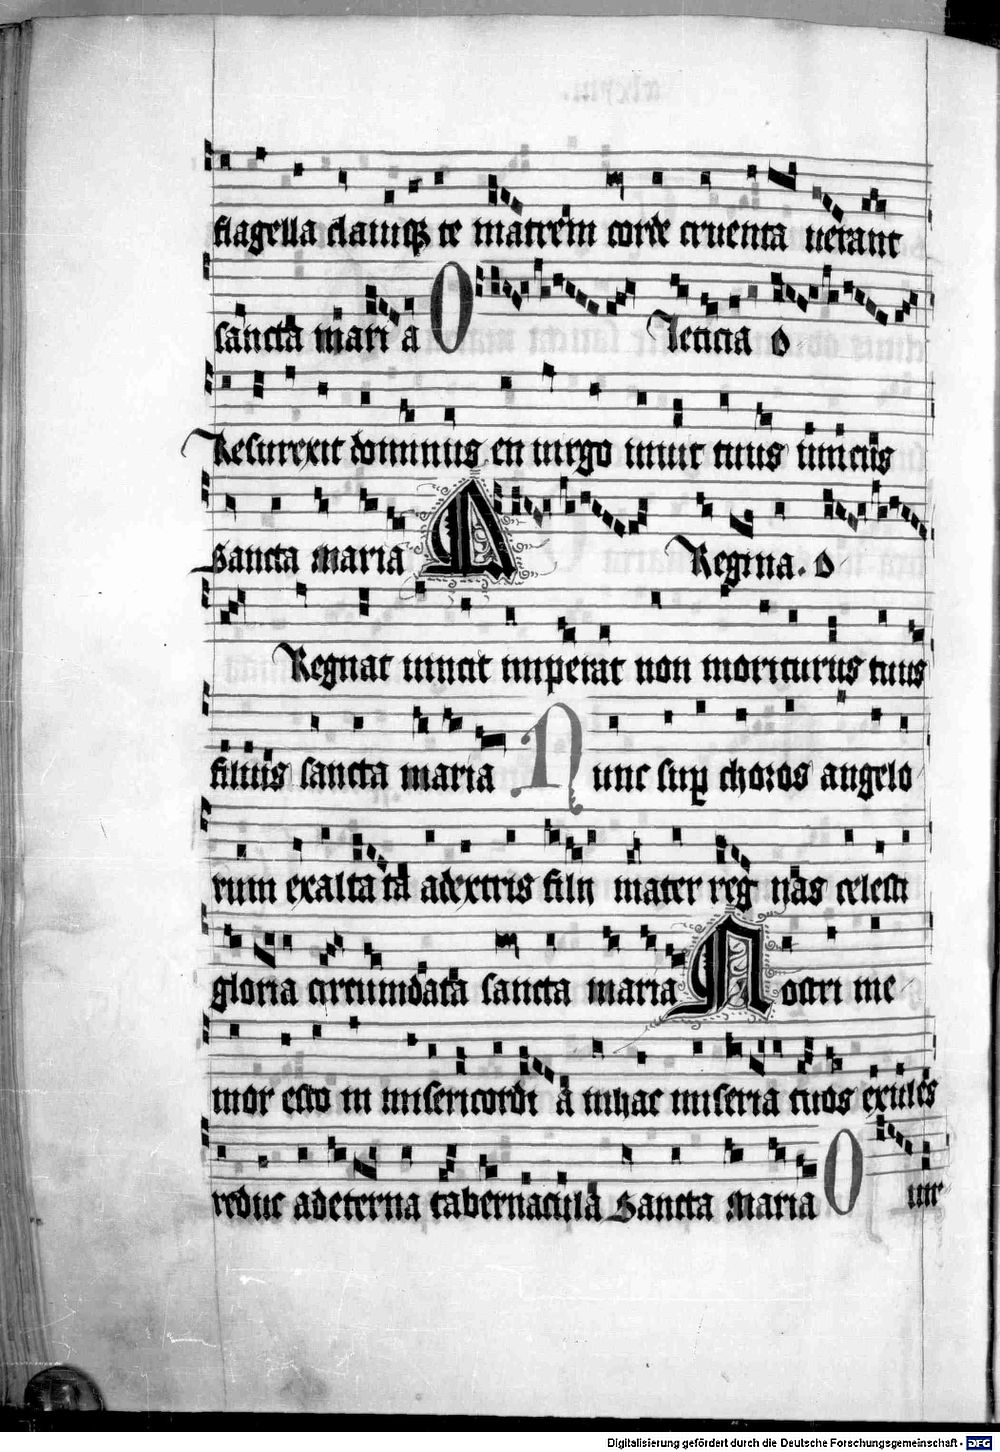 flagella clauiq; te matrem corde cruenta uerant
sancta mari a O leticia o
Resurexit dominus en uirgo uiuit tuus unicus
Sancta maria A Regina. o
Regnat uincit imperat non moriturus tuus
filius sancta maria N unc sup choros angelo
rum exalta ta adextris filij mater reg nas celesti
gloria circumdata sancta maria N ostri me
mor esto in misericordi a inhac miseria tuos exules
reduc adeterna tabernacula Sancta Maria O
Digitalisierung gefördert durch die Deutsche Forschungsgemeinschaft - DFG